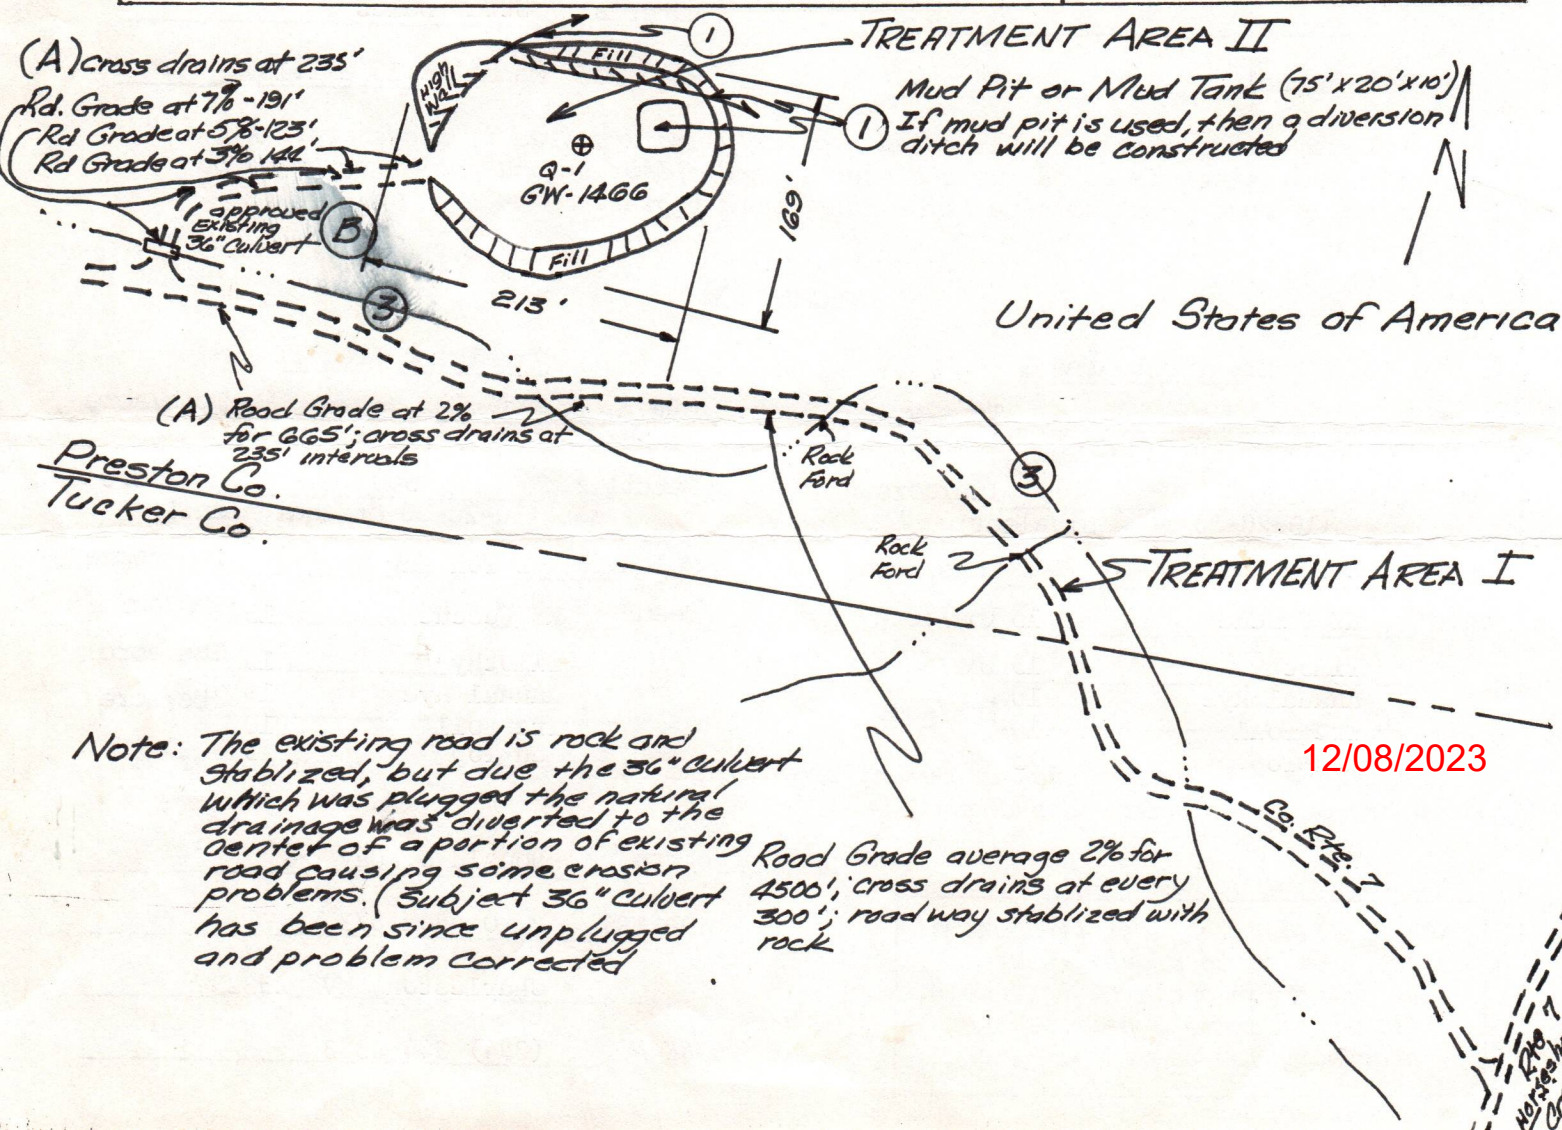 (A) cross drains at 235'
Rd. Grade at 7% - 191'
Rd Grade at 5% - 123'
Rd Grade at 3% 144'
approved
Existing
36" Culvert
B
3
High
Wall
Fill
1
TREATMENT AREA II
Mud Pit or Mud Tank (75' x 20' x 10')
1
If mud pit is used, then a diversion
ditch will be constructed
Q-1
GW-1466
Fill
169'
213'
N
United States of America
(A) Road Grade at 2%
for 665'; cross drains at
235' intervals
Preston Co.
Tucker Co.
Rock
Ford
3
Rock
Ford
TREATMENT AREA I
Note: The existing road is rock and
stablized, but due the 36" culvert
which was plugged the natural
drainage was diverted to the
center of a portion of existing
road causing some erosion
problems. (Subject 36" culvert
has been since unplugged
and problem corrected
12/08/2023
Co. Rte. 7
Road Grade average 2% for
4500'; cross drains at every
300'; road way stablized with
rock
Rte 7